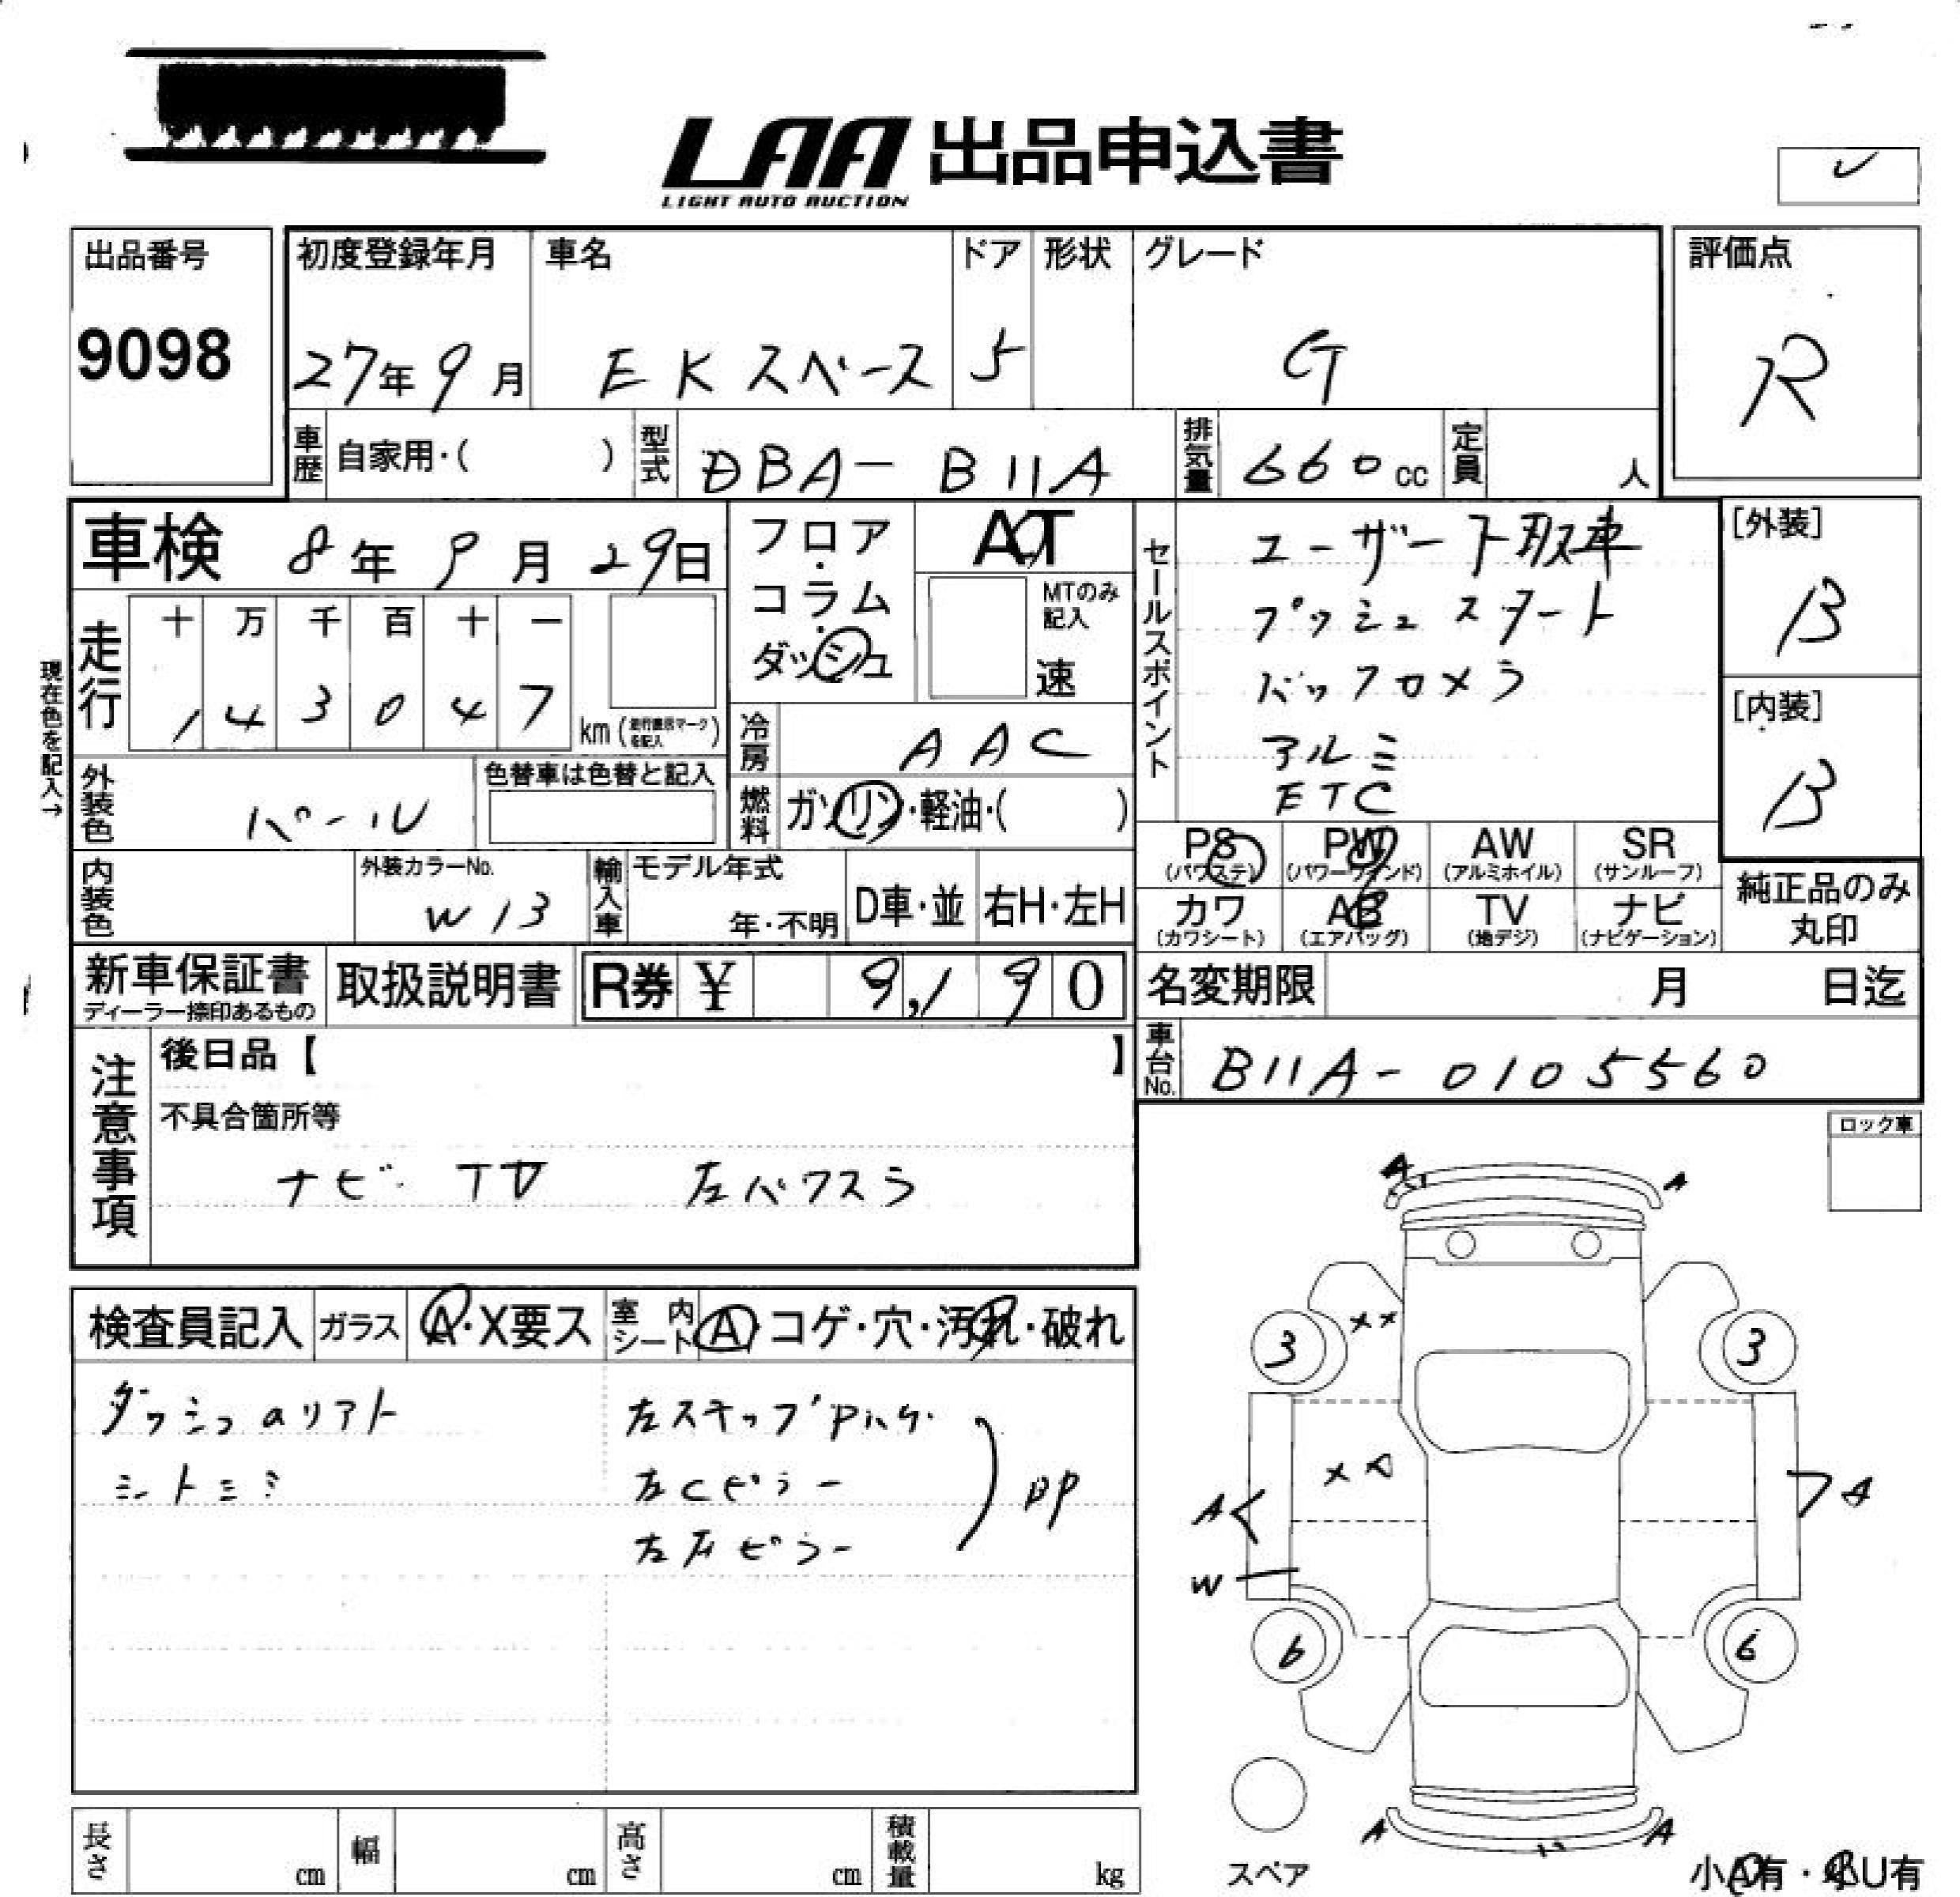 LAA 出品申込書
LIGHT AUTO AUCTION
出品番号
9098
初度登録年月
27年9月
車名
EKスペース
ドア
5
形状
グレード
G
評価点
R
車歴 自家用・( )
型式 DBA-B11A
排気量 660cc
定員 人
車検 8年9月29日
フロア・コラム・ダッシュ
AT
MTのみ記入
速
現在色を記入→
走行
十 万 千 百 十 一
1 4 3 0 4 7
km(走行表示マークを記入)
冷房 AAC
燃料 ガソリン・軽油・( )
外装色 パール
色替車は色替と記入
内装色
外装カラーNo.
W13
輸入車
モデル年式
年・不明
D車・並
右H・左H
セールスポイント
ユーザー下取車
プッシュスタート
バックカメラ
アルミ
ETC
[外装]
B
[内装]
B
PS (パワステ)
PW (パワーウインド)
AW (アルミホイル)
SR (サンルーフ)
カワ (カワシート)
AB (エアバッグ)
TV (地デジ)
ナビ (ナビゲーション)
純正品のみ丸印
新車保証書
ディーラー捺印あるもの
取扱説明書
R券 ¥ 9,190
名変期限 月 日迄
車台No. B11A-0105560
注意事項
後日品【 】
不具合箇所等
ナビ TV 左パワスラ
ロック車
検査員記入
ガラス A・X要ス
室内シート A・コゲ・穴・汚れ・破れ
シトミミ
左Cピラー
DP
A A
XX
3 3
A A
W
6 6
A A
スペア
小A有・小U有
長さ cm
幅 cm
高さ cm
積載量 kg